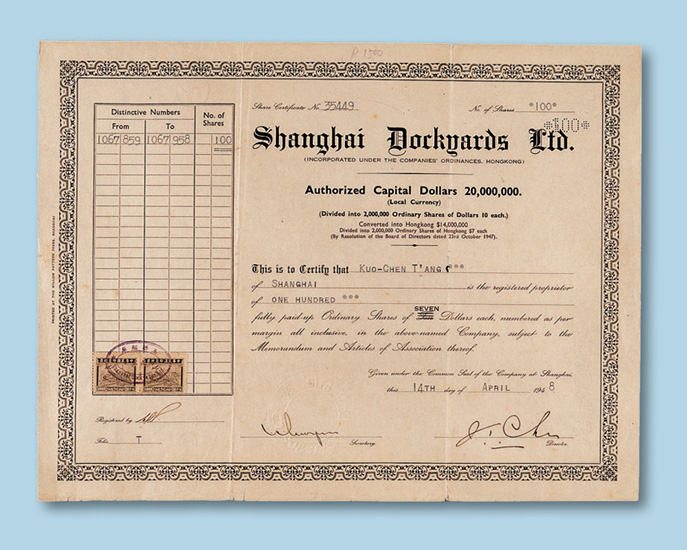 P 1500
Share Certificate No. 35449
No. of Shares *100*
*100*
Distinctive Numbers
No. of Shares
From To
1067 859 1067 958 100
Shanghai Dockyards Ltd.
(INCORPORATED UNDER THE COMPANIES' ORDINANCES, HONGKONG)
Authorized Capital Dollars 20,000,000.
(Local Currency)
(Divided into 2,000,000 Ordinary Shares of Dollars 10 each.)
Converted into Hongkong $14,000,000
Divided into 2,000,000 Ordinary Shares of Hongkong $7 each
(By Resolution of the Board of Directors dated 23rd October 1947).
This is to Certify that KUO-CHEN T'ANG ***
of SHANGHAI is the registered proprietor
of ONE HUNDRED ***
fully paid-up Ordinary Shares of SEVEN Dollars each, numbered as per
margin all inclusive, in the above-named Company, subject to the
Memorandum and Articles of Association thereof.
Given under the Common Seal of the Company at Shanghai,
this 14TH day of APRIL 1948
Registered by
Folio T
Secretary.
Director.